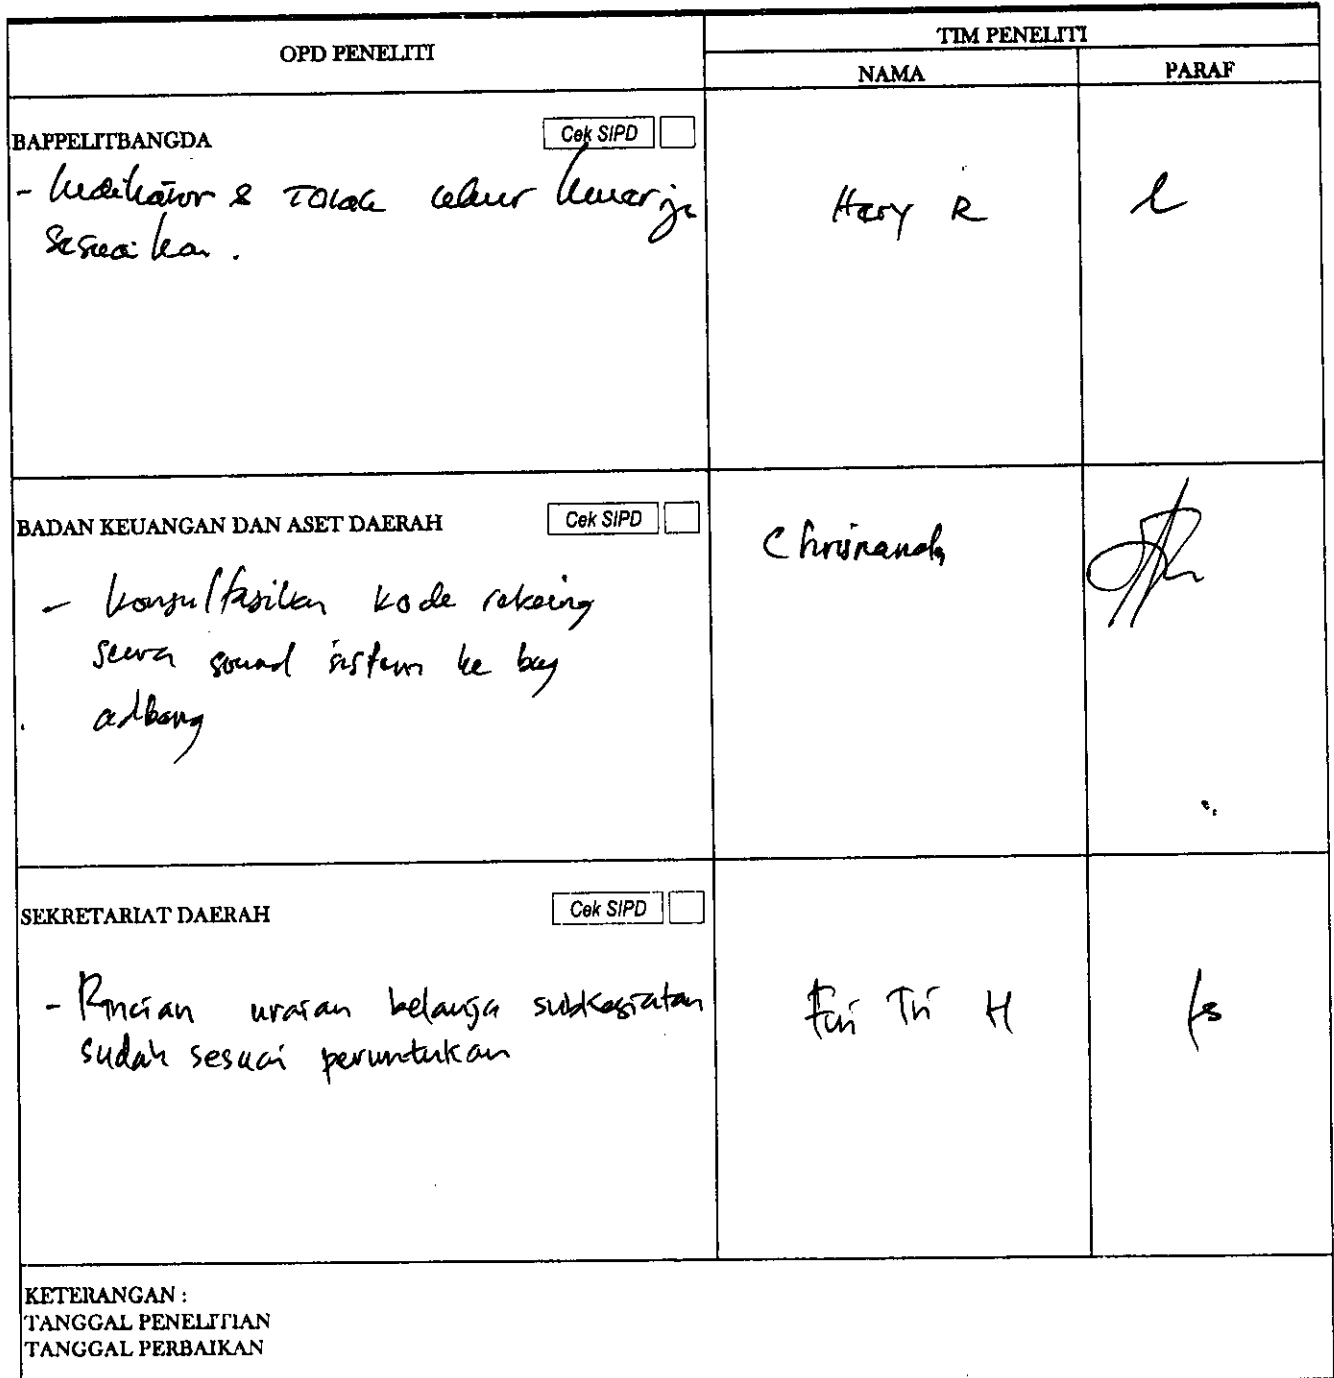 OPD PENELITI
TIM PENELITI
NAMA
PARAF
BAPPELITBANGDA
Cek SIPD
- Indikator & Tolak ukur kinerja
sesuaikan.
Hary R
BADAN KEUANGAN DAN ASET DAERAH
Cek SIPD
- konsultasikan kode rekeing
sewa sound sistem ke bag
adbang
Chrisnanda
SEKRETARIAT DAERAH
Cek SIPD
- Rincian uraian belanja subkegiatan
sudah sesuai peruntukan
Tri H
KETERANGAN :
TANGGAL PENELITIAN
TANGGAL PERBAIKAN